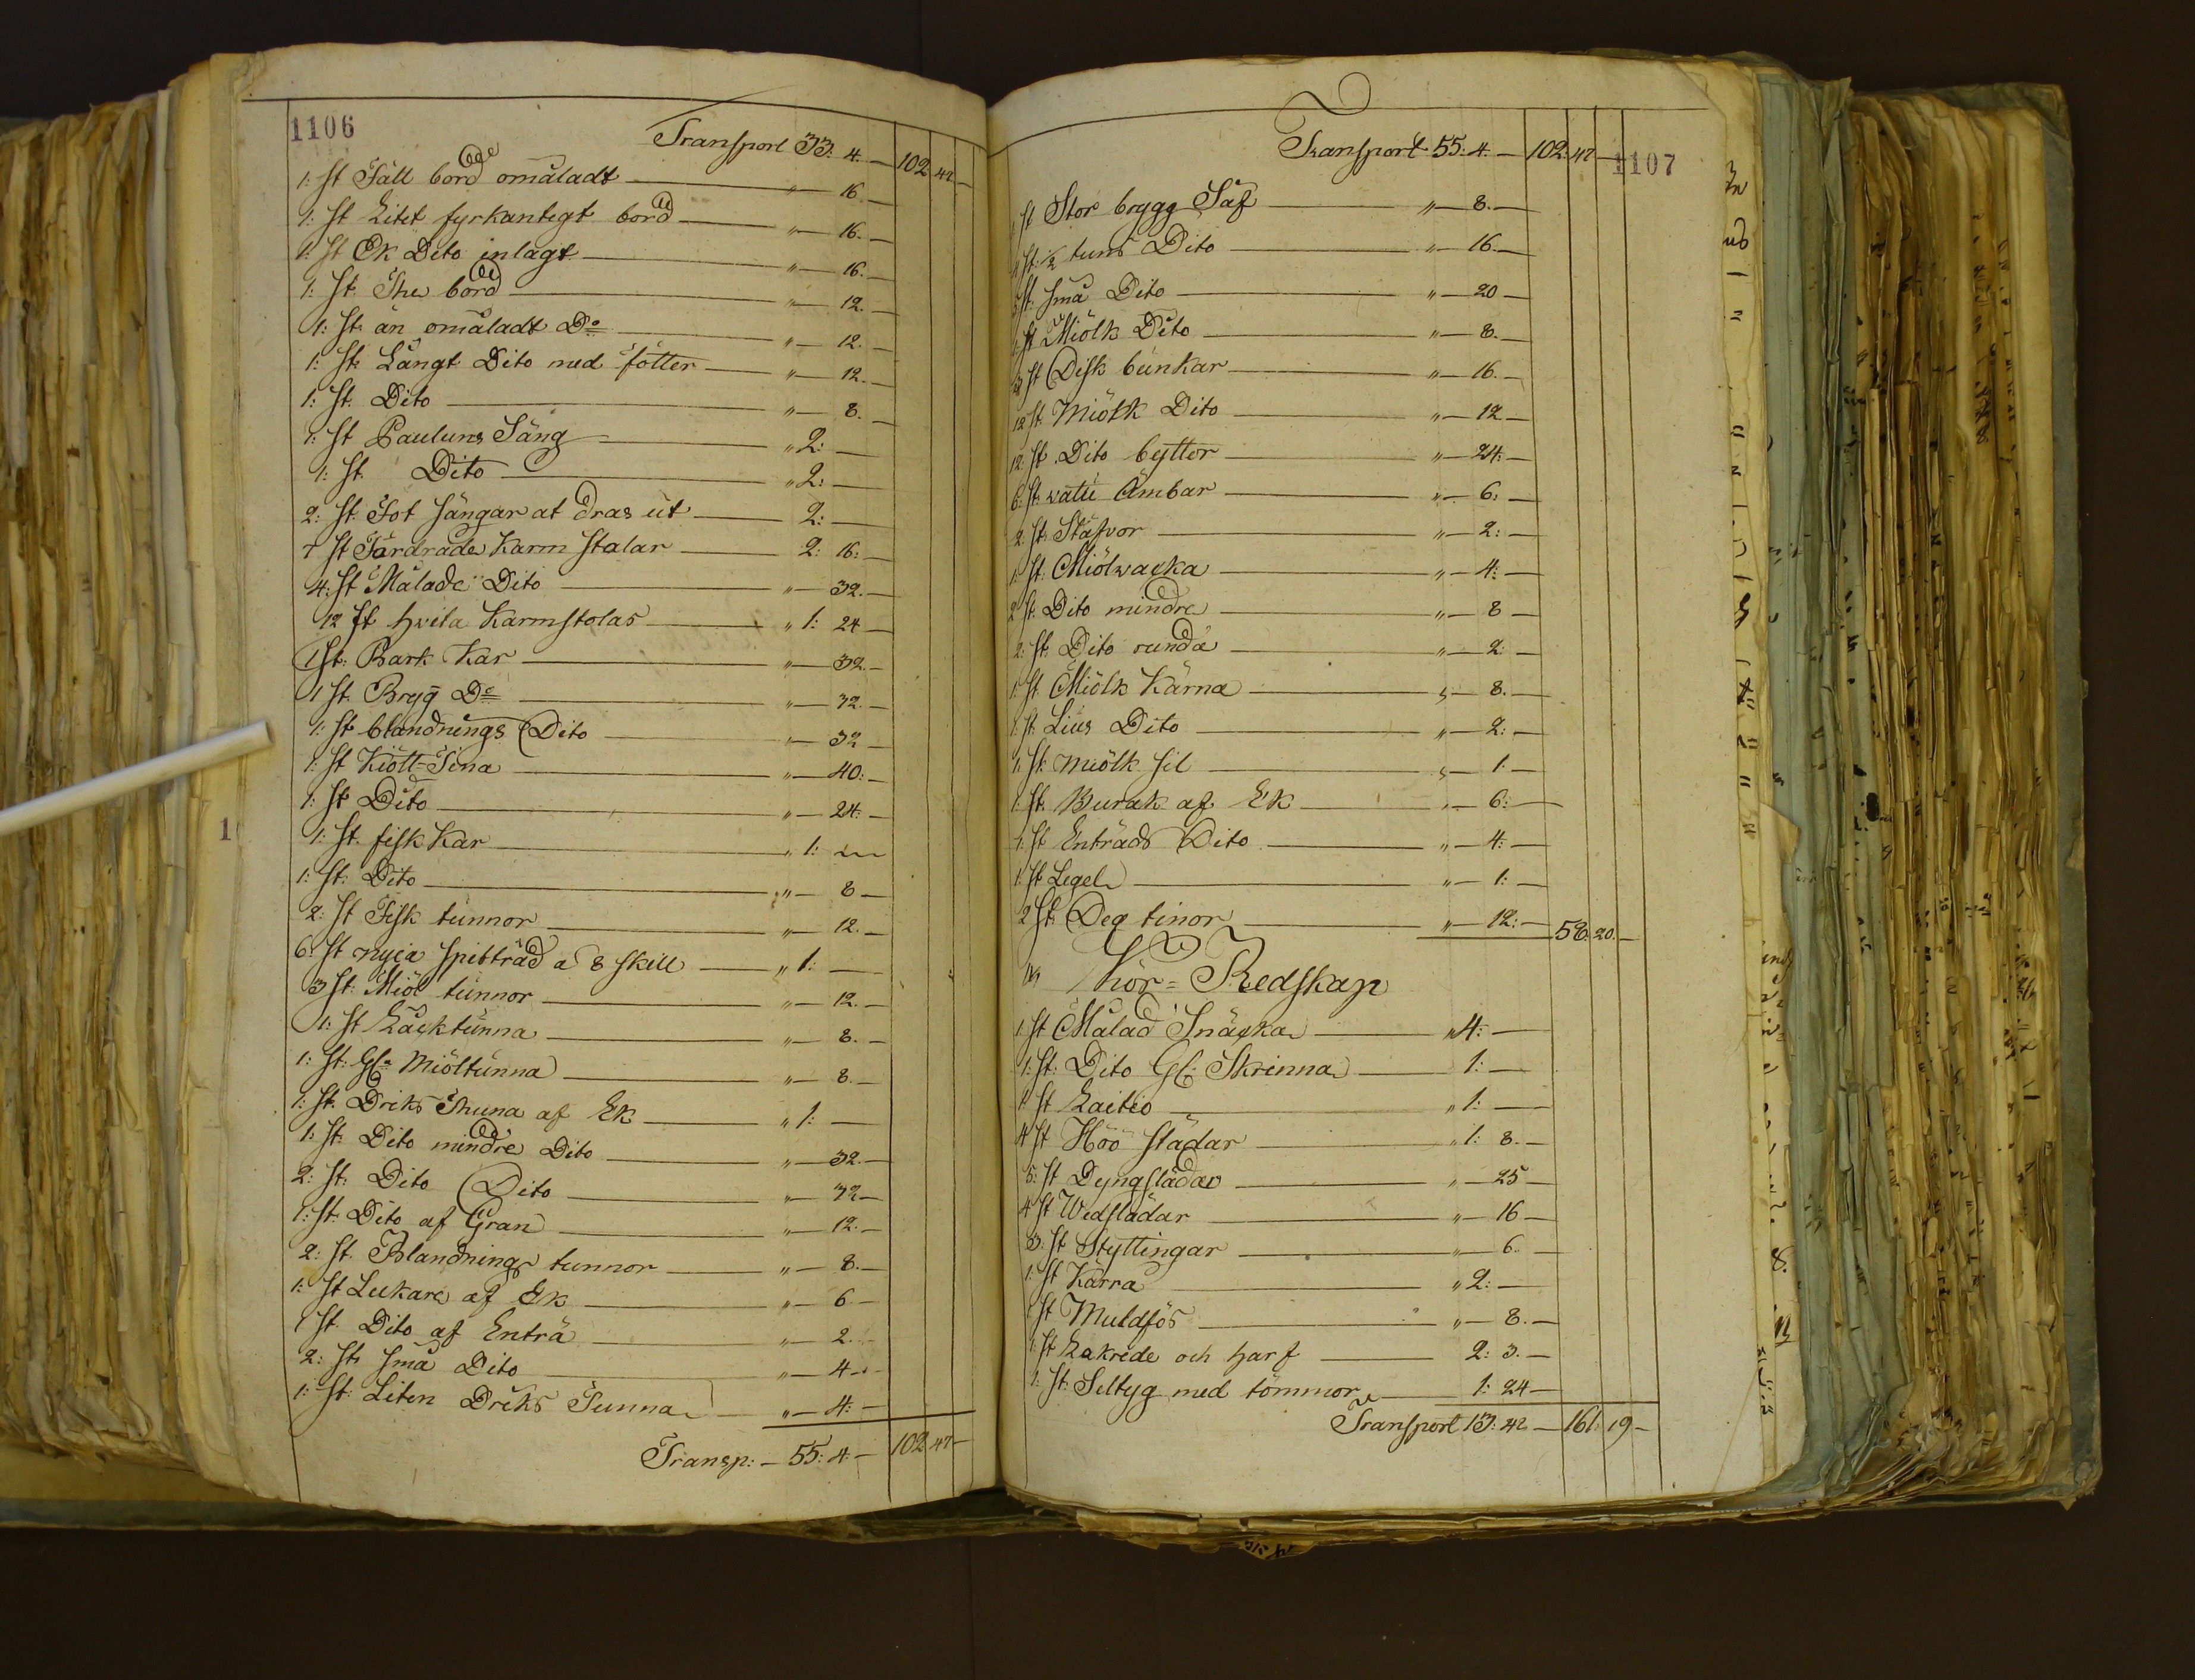 1106
Transport 33. 4. — 102 47 —
1: st Fäll bord omåladt — " — 16. —
1: st Litet fyrkantigt bord — " — 16. —
1: st Ek Dito inlagt — " — 16. —
1: st. The bord — " — 12. —
1: st: än omåladt Do — " — 12. —
1: st: Långt Dito med fötter — " — 12. —
1: st: Dito — " — 8. —
1: st Pauluns Säng — " 2: —
1: st. Dito — " 2: —
2: st: Tot sängar at dras ut — 2: —
7 st Färdrade Karm stolar — 2: 16: —
4: st Målade Dito — " — 32. —
12 st hvita Karmstolar — " 1: 24 —
1 st: Bark Kar — " — 32. —
1 st. Brygg Do — " — 32. —
1: st blandnings Dito — " — 32 —
1: st Kiött-Tina — " — 40: —
1: st Dito — " — 24: —
1: st. fisk Kar — " 1: —
1: st: Dito — " — 8 —
2: st Fisk tunnor — " — 12. —
6: st nyia spitträd a 8 skill — " 1: —
3 st: Miöl tunnor — " — 12. —
1: st Läcktunna — " — 8. —
1: st: Gl: Miöltunna — " — 8. —
1: st. Driks Thuna af Ek — " 1: —
1: st: Dito mindre Dito — " — 32. —
2: st: Dito Dito — " — 32 —
1: st: Dito af Gran — " — 12. —
2: st. Blandnings tunnor — " — 8. —
1: st Lukare af Ek — " — 6 —
1 st. Dito af Enträ — " — 2. —
2: st: små Dito — " — 4 —
1: st: Liten Driks Tunna — " — 4: —
Transp: — 55: 4: — 102 47 —
Transport 55: 4. — 102: 47 —
1107
st Stor brygg Såf — " — 8. —
st: 1/2 tuns Dito — " — 16. —
st. små Dito — " — 20 —
1 st Miölk Dito — " — 8. —
3 st Disk bunkar — " — 16. —
12 st. Miölk Dito — " — 12 —
12: st. Dito byttor — " — 24: —
6: st: vatu Ämbar — " — 6: —
2: st: Stäfvor — " — 2: —
1: st: Miölwacka — " — 4: —
2 st. Dito mindre — " — 8 —
2: st: Dito runda — " — 2: —
1: st. Miölk Kärna — " — 8. —
1: st. Lius Dito — " — 2: —
1: st: miölk sil — " — 1: —
1: st: Kurak af Ek — " — 6: —
1: st Enträds Dito — " — 4: —
1: st Legel — " — 1: —
2 st: Deg tinor — " — 12: — 58: 20. —
Khör = Redskap
1: st Målad Snäcka — " 4: —
1: st: Dito Gl: Skrinna — 1: —
1: st Kaitio — " 1: —
4 st Höö slädar — " 1: 8. —
5: st Dyngslädar — " — 25 —
4 st Wedslädar — " — 16 —
3: st Styttingar — " — 6. —
1: st Kärra — " 2: —
1 st Muldfös — " — 8. —
1: st Lakrede och harf — 2: 3. —
1: st: Seltyg med tömmor — 1: 24 —
Transport 13: 42 — 161: 19 —